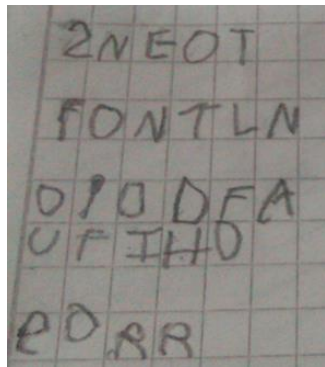 2NEOT
FONTLN
OPODFA
UFIHO
PORR